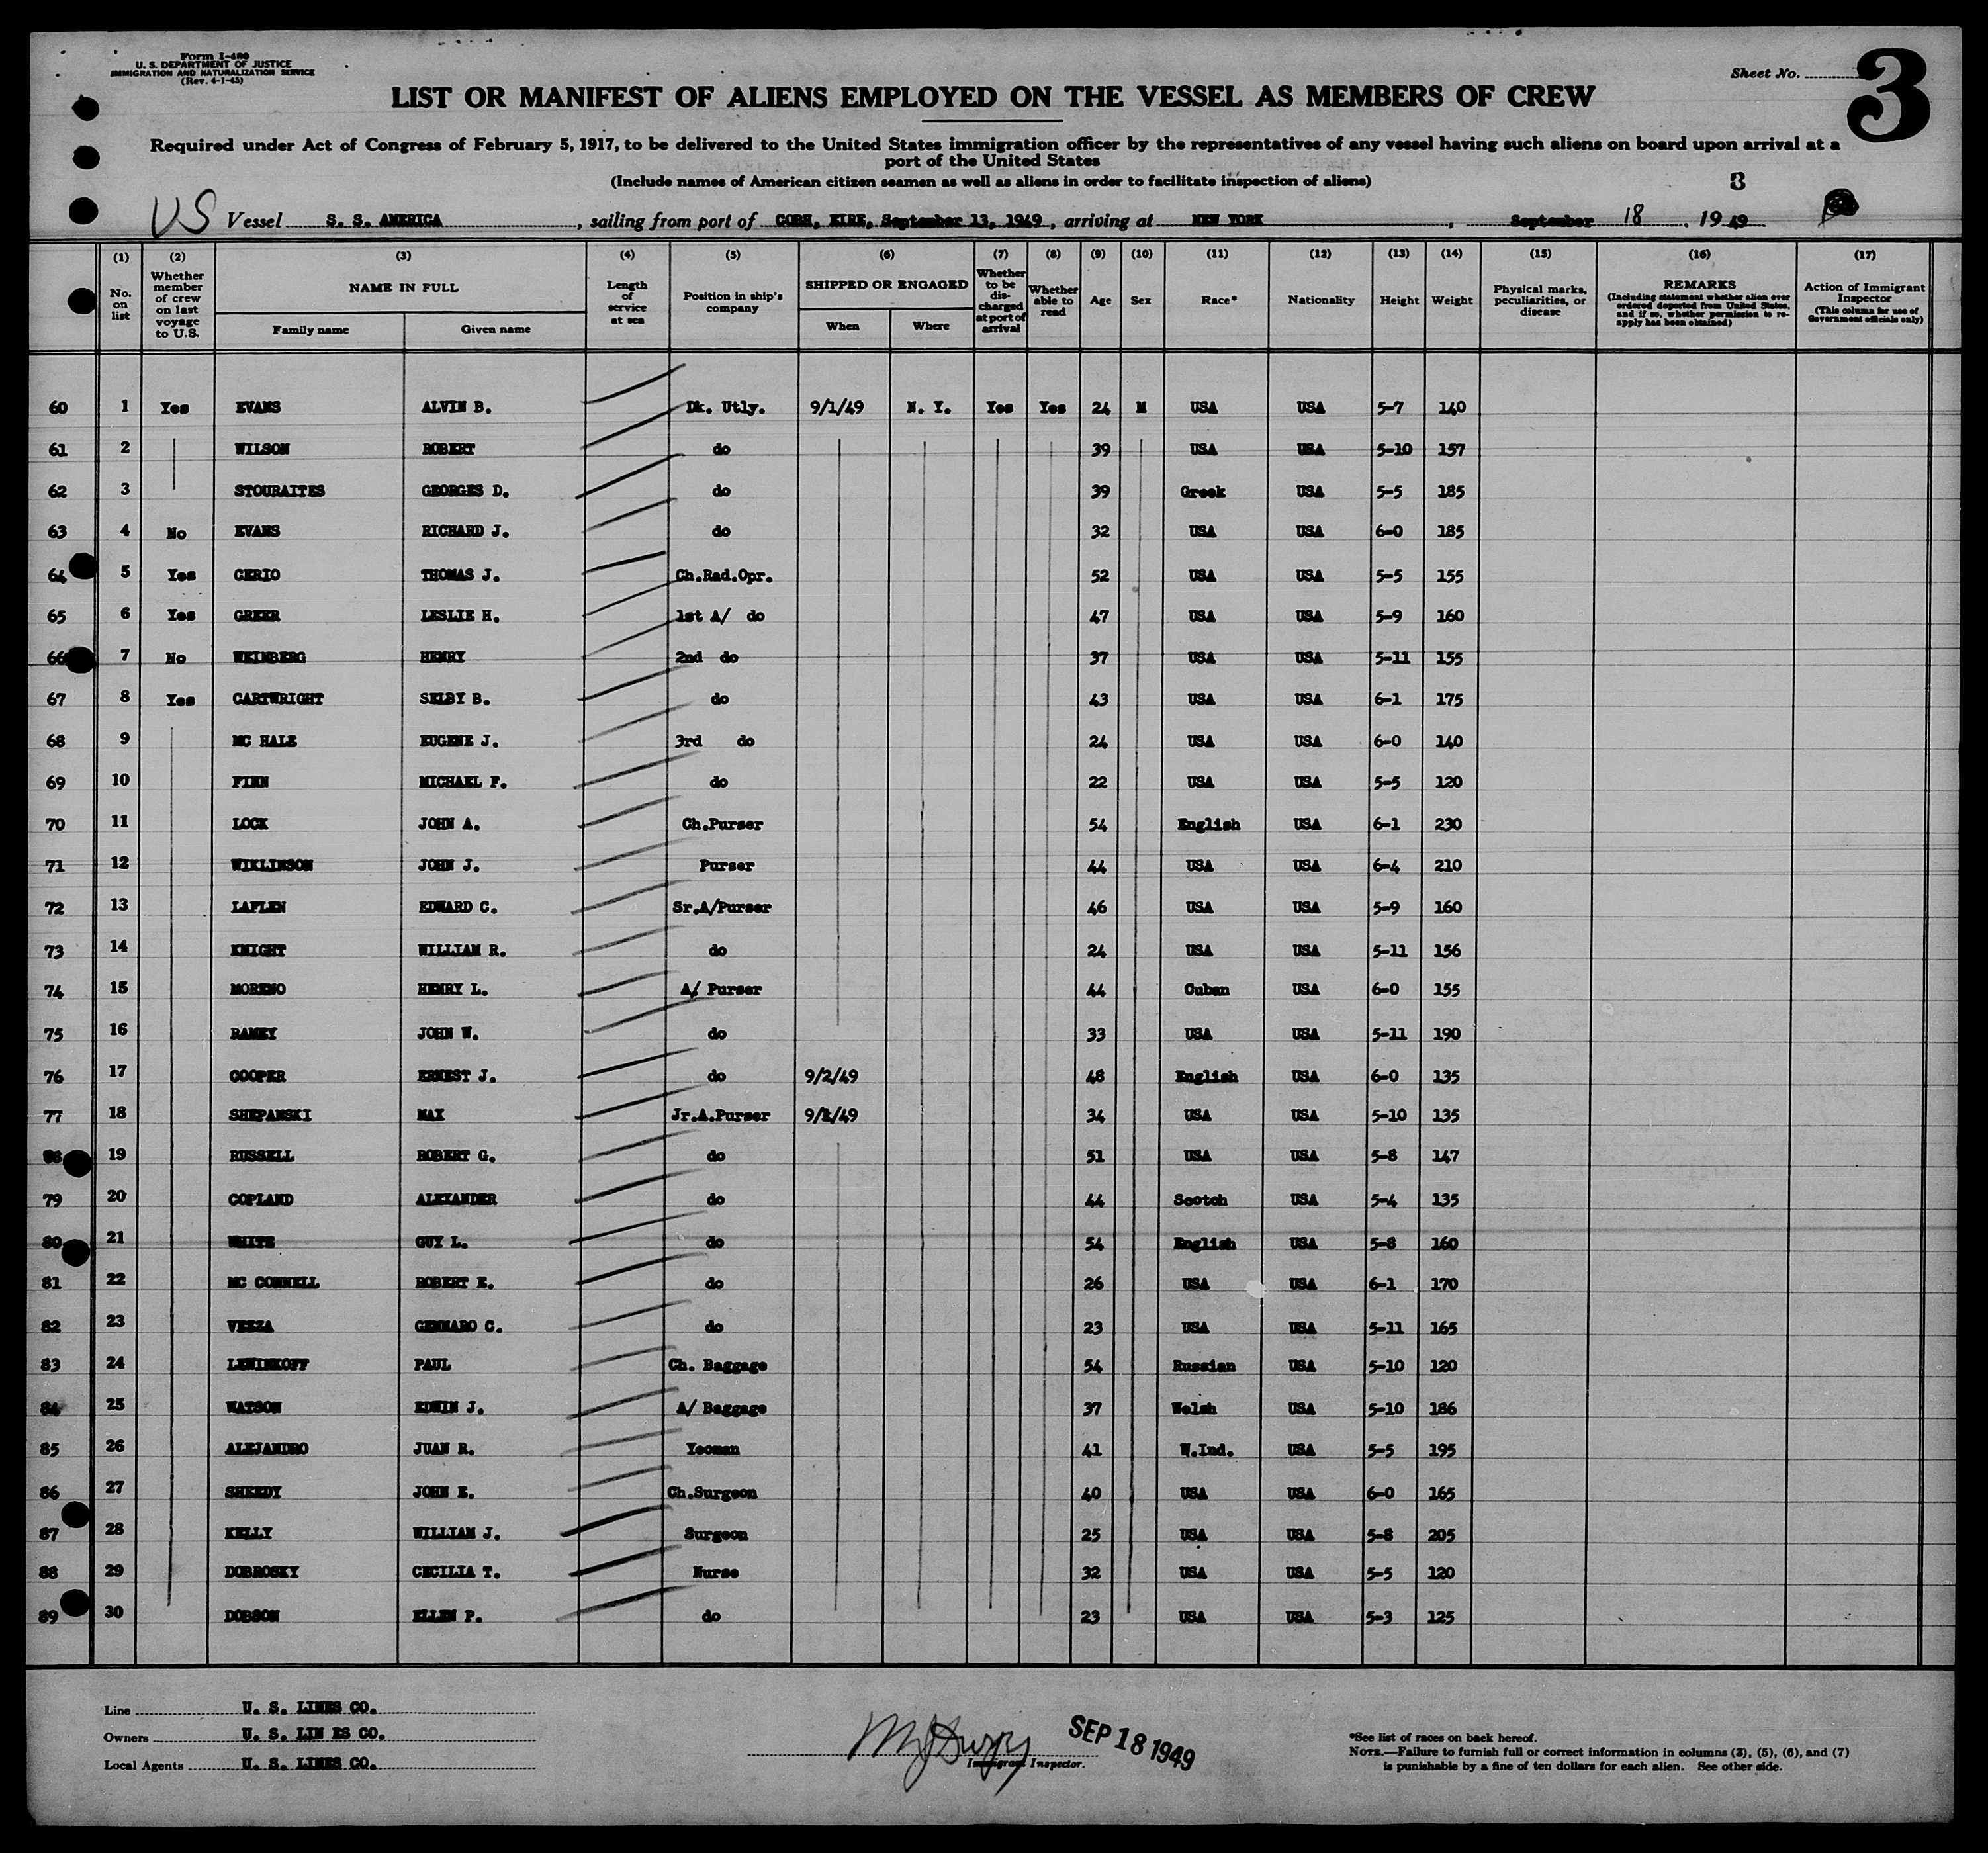 Form I-480
U. S. DEPARTMENT OF JUSTICE
IMMIGRATION AND NATURALIZATION SERVICE
(Rev. 4-1-45)
Sheet No.
3
LIST OR MANIFEST OF ALIENS EMPLOYED ON THE VESSEL AS MEMBERS OF CREW
Required under Act of Congress of February 5, 1917, to be delivered to the United States immigration officer by the representatives of any vessel having such aliens on board upon arrival at a
port of the United States
(Include names of American citizen seamen as well as aliens in order to facilitate inspection of aliens)
3
US Vessel S. S. AMERICA, sailing from port of COBH, EIRE, September 13, 1949, arriving at NEW YORK, September 18, 1949
(1) (2) (3) (4) (5) (6) (7) (8) (9) (10) (11) (12) (13) (14) (15) (16) (17)
No. on list
Whether member of crew on last voyage to U.S.
NAME IN FULL
Family name Given name
Length of service at sea
Position in ship's company
SHIPPED OR ENGAGED
When Where
Whether to be discharged at port of arrival
Whether able to read
Age Sex Race* Nationality Height Weight
Physical marks, peculiarities, or disease
REMARKS
(Including statement whether alien ever ordered deported from United States, and if so, whether permission to reapply has been obtained)
Action of Immigrant Inspector
(This column for use of Government officials only)
60 1 Yes EVANS ALVIN B. Dk. Utly. 9/1/49 N. Y. Yes Yes 24 M USA USA 5-7 140
61 2 WILSON ROBERT do 39 USA USA 5-10 157
62 3 STOURAITES GEORGES D. do 39 Greek USA 5-5 185
63 4 No EVANS RICHARD J. do 32 USA USA 6-0 185
64 5 Yes CERIO THOMAS J. Ch.Rad.Opr. 52 USA USA 5-5 155
65 6 Yes GREER LESLIE H. 1st A/ do 47 USA USA 5-9 160
66 7 No WEINBERG HENRY 2nd do 37 USA USA 5-11 155
67 8 Yes CARTWRIGHT SELBY B. do 43 USA USA 6-1 175
68 9 MC HALE EUGENE J. 3rd do 24 USA USA 6-0 140
69 10 FINN MICHAEL F. do 22 USA USA 5-5 120
70 11 LOCK JOHN A. Ch.Purser 54 English USA 6-1 230
71 12 WIKLINSON JOHN J. Purser 44 USA USA 6-4 210
72 13 LAFLEN EDWARD C. Sr.A/Purser 46 USA USA 5-9 160
73 14 KNIGHT WILLIAM R. do 24 USA USA 5-11 156
74 15 MORENO HENRY L. A/ Purser 44 Cuban USA 6-0 155
75 16 RAMEY JOHN W. do 33 USA USA 5-11 190
76 17 COOPER ERNEST J. do 9/2/49 48 English USA 6-0 135
77 18 SHEPANSKI MAX Jr.A.Purser 9/1/49 34 USA USA 5-10 135
19 RUSSELL ROBERT G. do 51 USA USA 5-8 147
79 20 COPLAND ALEXANDER do 44 Scotch USA 5-4 135
80 21 WHITE GUY L. do 54 English USA 5-8 160
81 22 MC CONNELL ROBERT E. do 26 USA USA 6-1 170
82 23 VEZZA GENNARO C. do 23 USA USA 5-11 165
83 24 LEWINKOFF PAUL Ch. Baggage 54 Russian USA 5-10 120
84 25 WATSON EDWIN J. A/ Baggage 37 Welsh USA 5-10 186
85 26 ALEJANDRO JUAN R. Yeoman 41 W.Ind. USA 5-5 195
86 27 SHEEDY JOHN E. Ch.Surgeon 40 USA USA 6-0 165
87 28 KELLY WILLIAM J. Surgeon 25 USA USA 5-8 205
88 29 DOBROSKY CECILIA T. Nurse 32 USA USA 5-5 120
89 30 DOBSON ELLEN P. do 23 USA USA 5-3 125
Line U. S. LINES CO.
Owners U. S. LIN ES CO.
Local Agents U. S. LINES CO.
SEP 18 1949
Immigrant Inspector.
*See list of races on back hereof.
NOTE.—Failure to furnish full or correct information in columns (3), (5), (6), and (7)
is punishable by a fine of ten dollars for each alien. See other side.